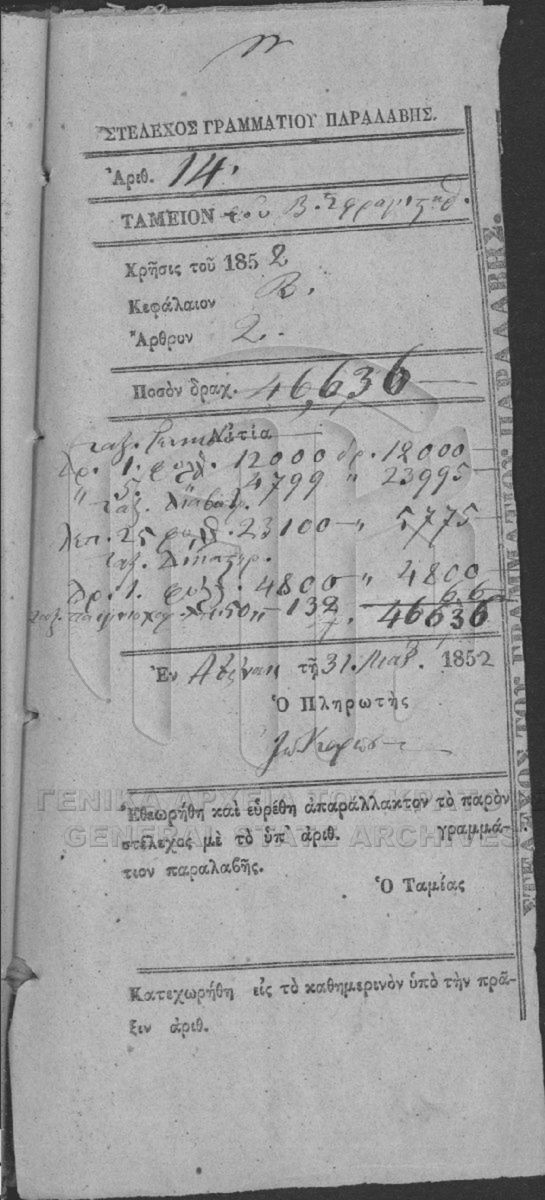 ΣΤΕΛΕΧΟΣ ΓΡΑΜΜΑΤΙΟΥ ΠΑΡΑΛΑΒΗΣ.
Ἀριθ. 14.
ΤΑΜΕΙΟΝ τοῦ Β.
Χρῆσις τοῦ 1852
Κεφάλαιον Β.
Ἄρθρον 2.
Ποσὸν δραχ. 46,636
ταξ.
δρ. 1. φυλ. 12000 δρ. 12000
" 5. 4799 " 23995
ταξ.
λεπ. 25 φυλ. 23100 " 5775
ταξ.
δρ. 1. φυλ. 4800 " 4800
ταξ. 50 132 66
46636
Ἐν Ἀθήναις τῇ 31 1852
Ὁ Πληρωτὴς
ΓΕΝΙΚΑ ΑΡΧΕΙΑ ΤΟΥ ΚΡΑΤΟΥΣ
GENERAL STATE ARCHIVES
Ἐθεωρήθη καὶ εὑρέθη ἀπαράλλακτον τὸ παρὸν
στέλεχος μὲ τὸ ὑπ' ἀριθ. γραμμά-
τιον παραλαβῆς.
Ὁ Ταμίας
Κατεχωρήθη εἰς τὸ καθημερινὸν ὑπὸ τὴν πρᾶ-
ξιν ἀριθ.
ΣΤΕΛΕΧΟΣ ΤΟΥ ΓΡΑΜΜΑΤΙΟΥ ΠΑΡΑΛΑΒΗΣ.